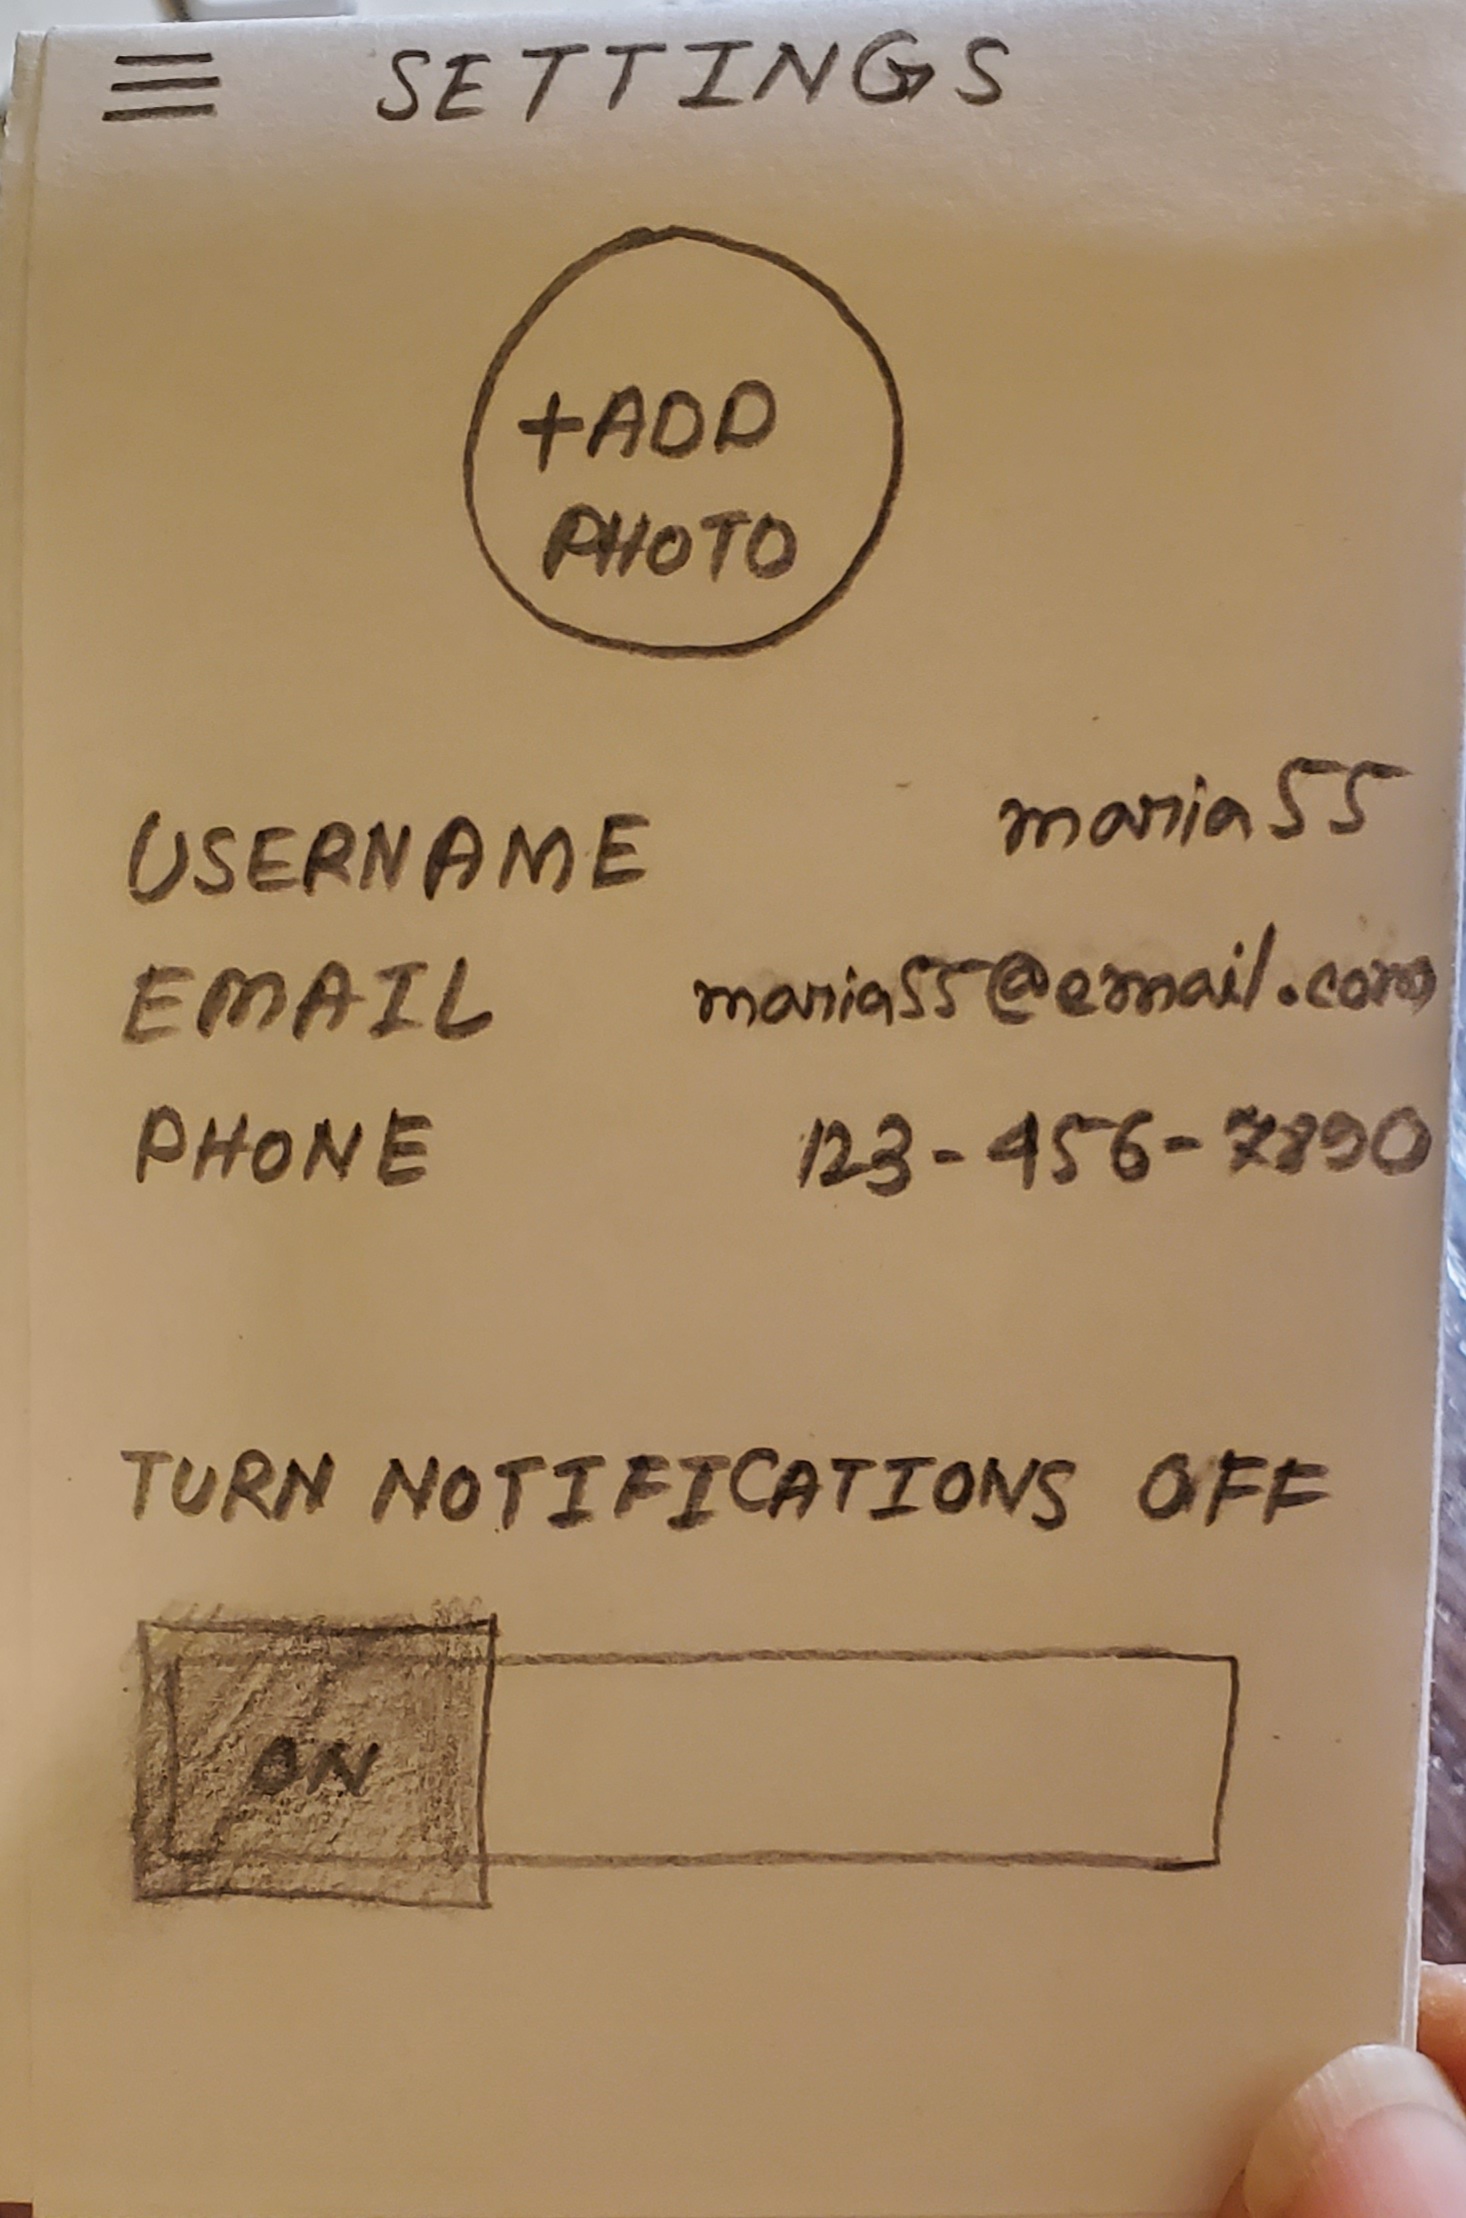 SETTINGS
+ADD
PHOTO
USERNAME maria55
EMAIL maria55@email.com
PHONE 123-456-7890
TURN NOTIFICATIONS OFF
ON